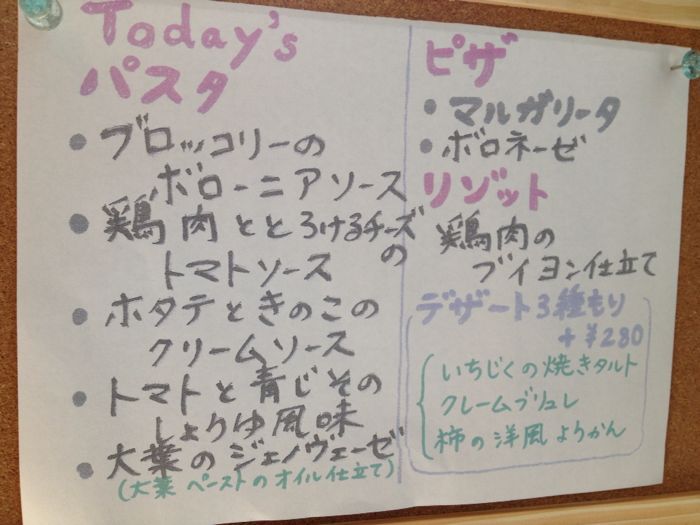 Today's
パスタ
・ブロッコリーの
ボローニアソース
・鶏肉ととろけるチーズの
トマトソース
・ホタテときのこの
クリームソース
・トマトと青じその
しょうゆ風味
・大葉のジェノヴェーゼ
(大葉ペーストのオイル仕立て)
ピザ
・マルガリータ
・ボロネーゼ
リゾット
鶏肉の
ブイヨン仕立て
デザート3種もり
+¥280
いちじくの焼きタルト
クレームブリュレ
柿の洋風ようかん